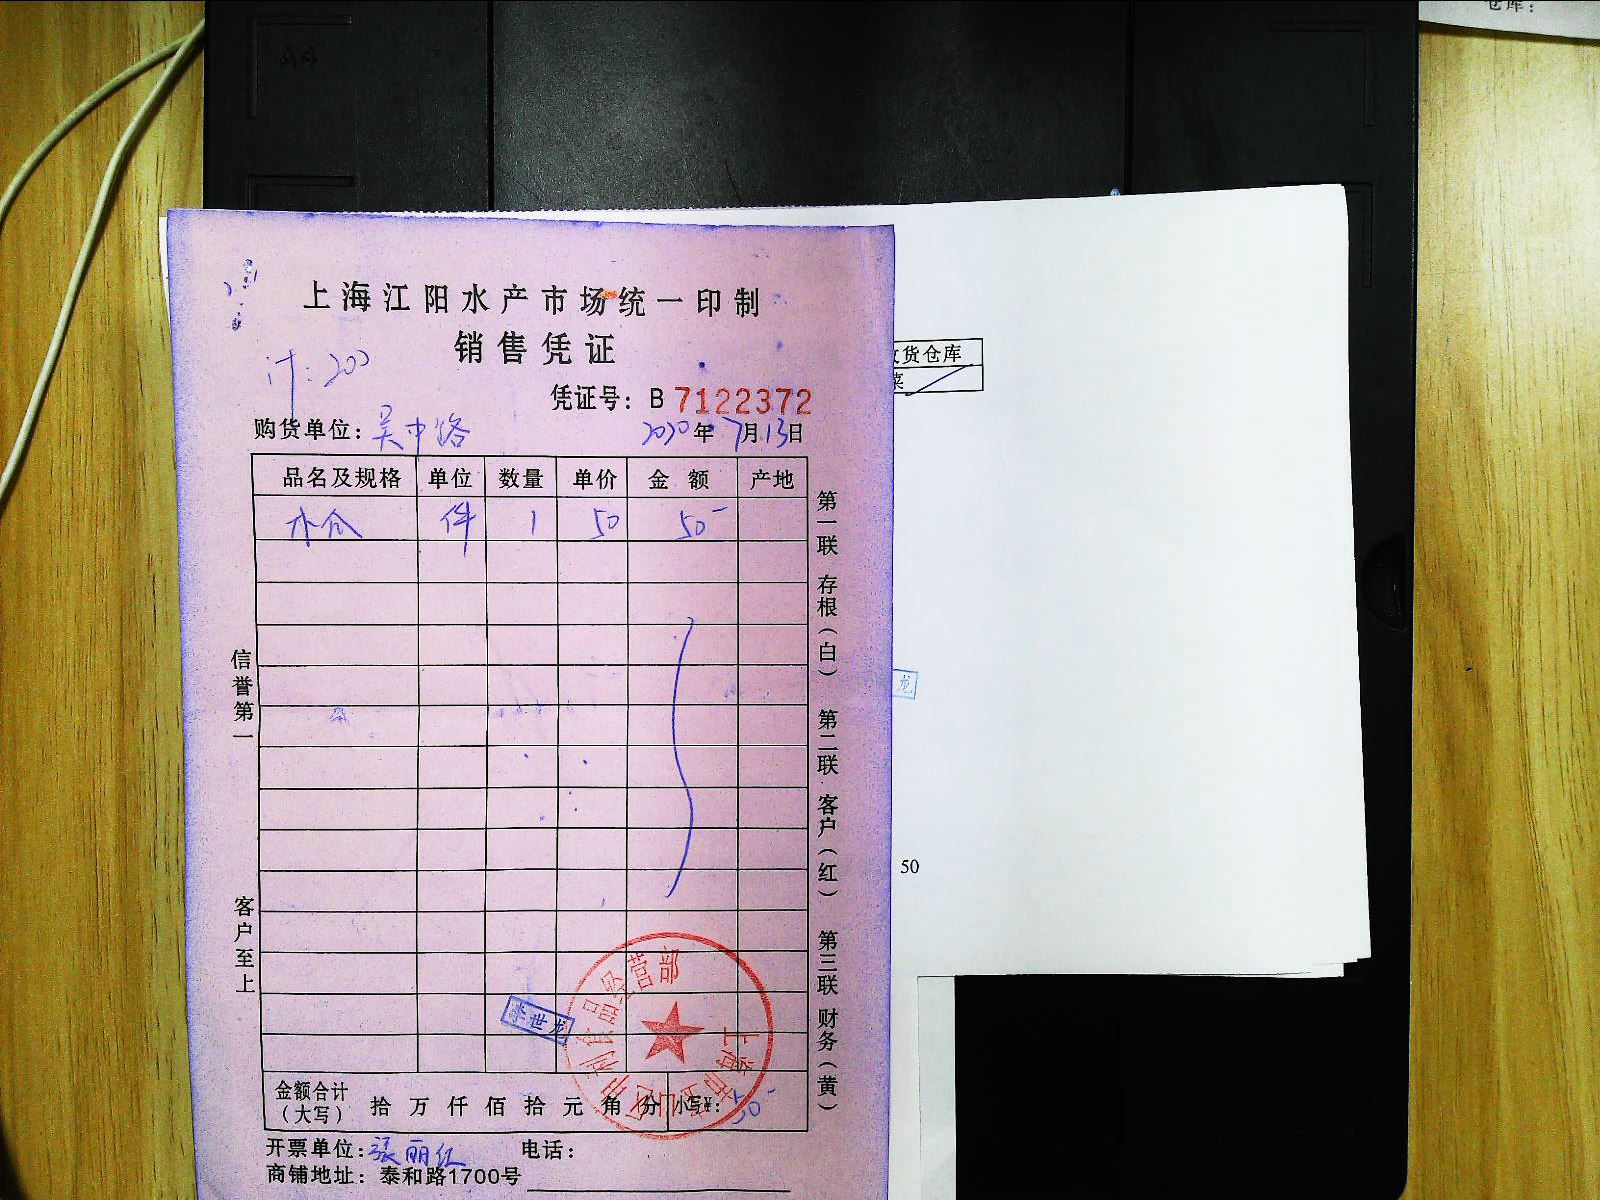 仓库：
上海江阳水产市场统一印制
销售凭证
计：200
凭证号：B 7122372
购货单位：吴中路 2020年7月13日
品名及规格 单位 数量 单价 金额 产地
件 1 50 50-
信誉第一
客户至上
第一联 存根（白） 第二联 客户（红） 第三联 财务（黄）
李世龙
食品经营部
金额合计（大写） 拾 万 仟 佰 拾 元 角 分 小写¥：50-
开票单位：张丽红 电话：
商铺地址：泰和路1700号
货仓库
菜
龙
50
A4